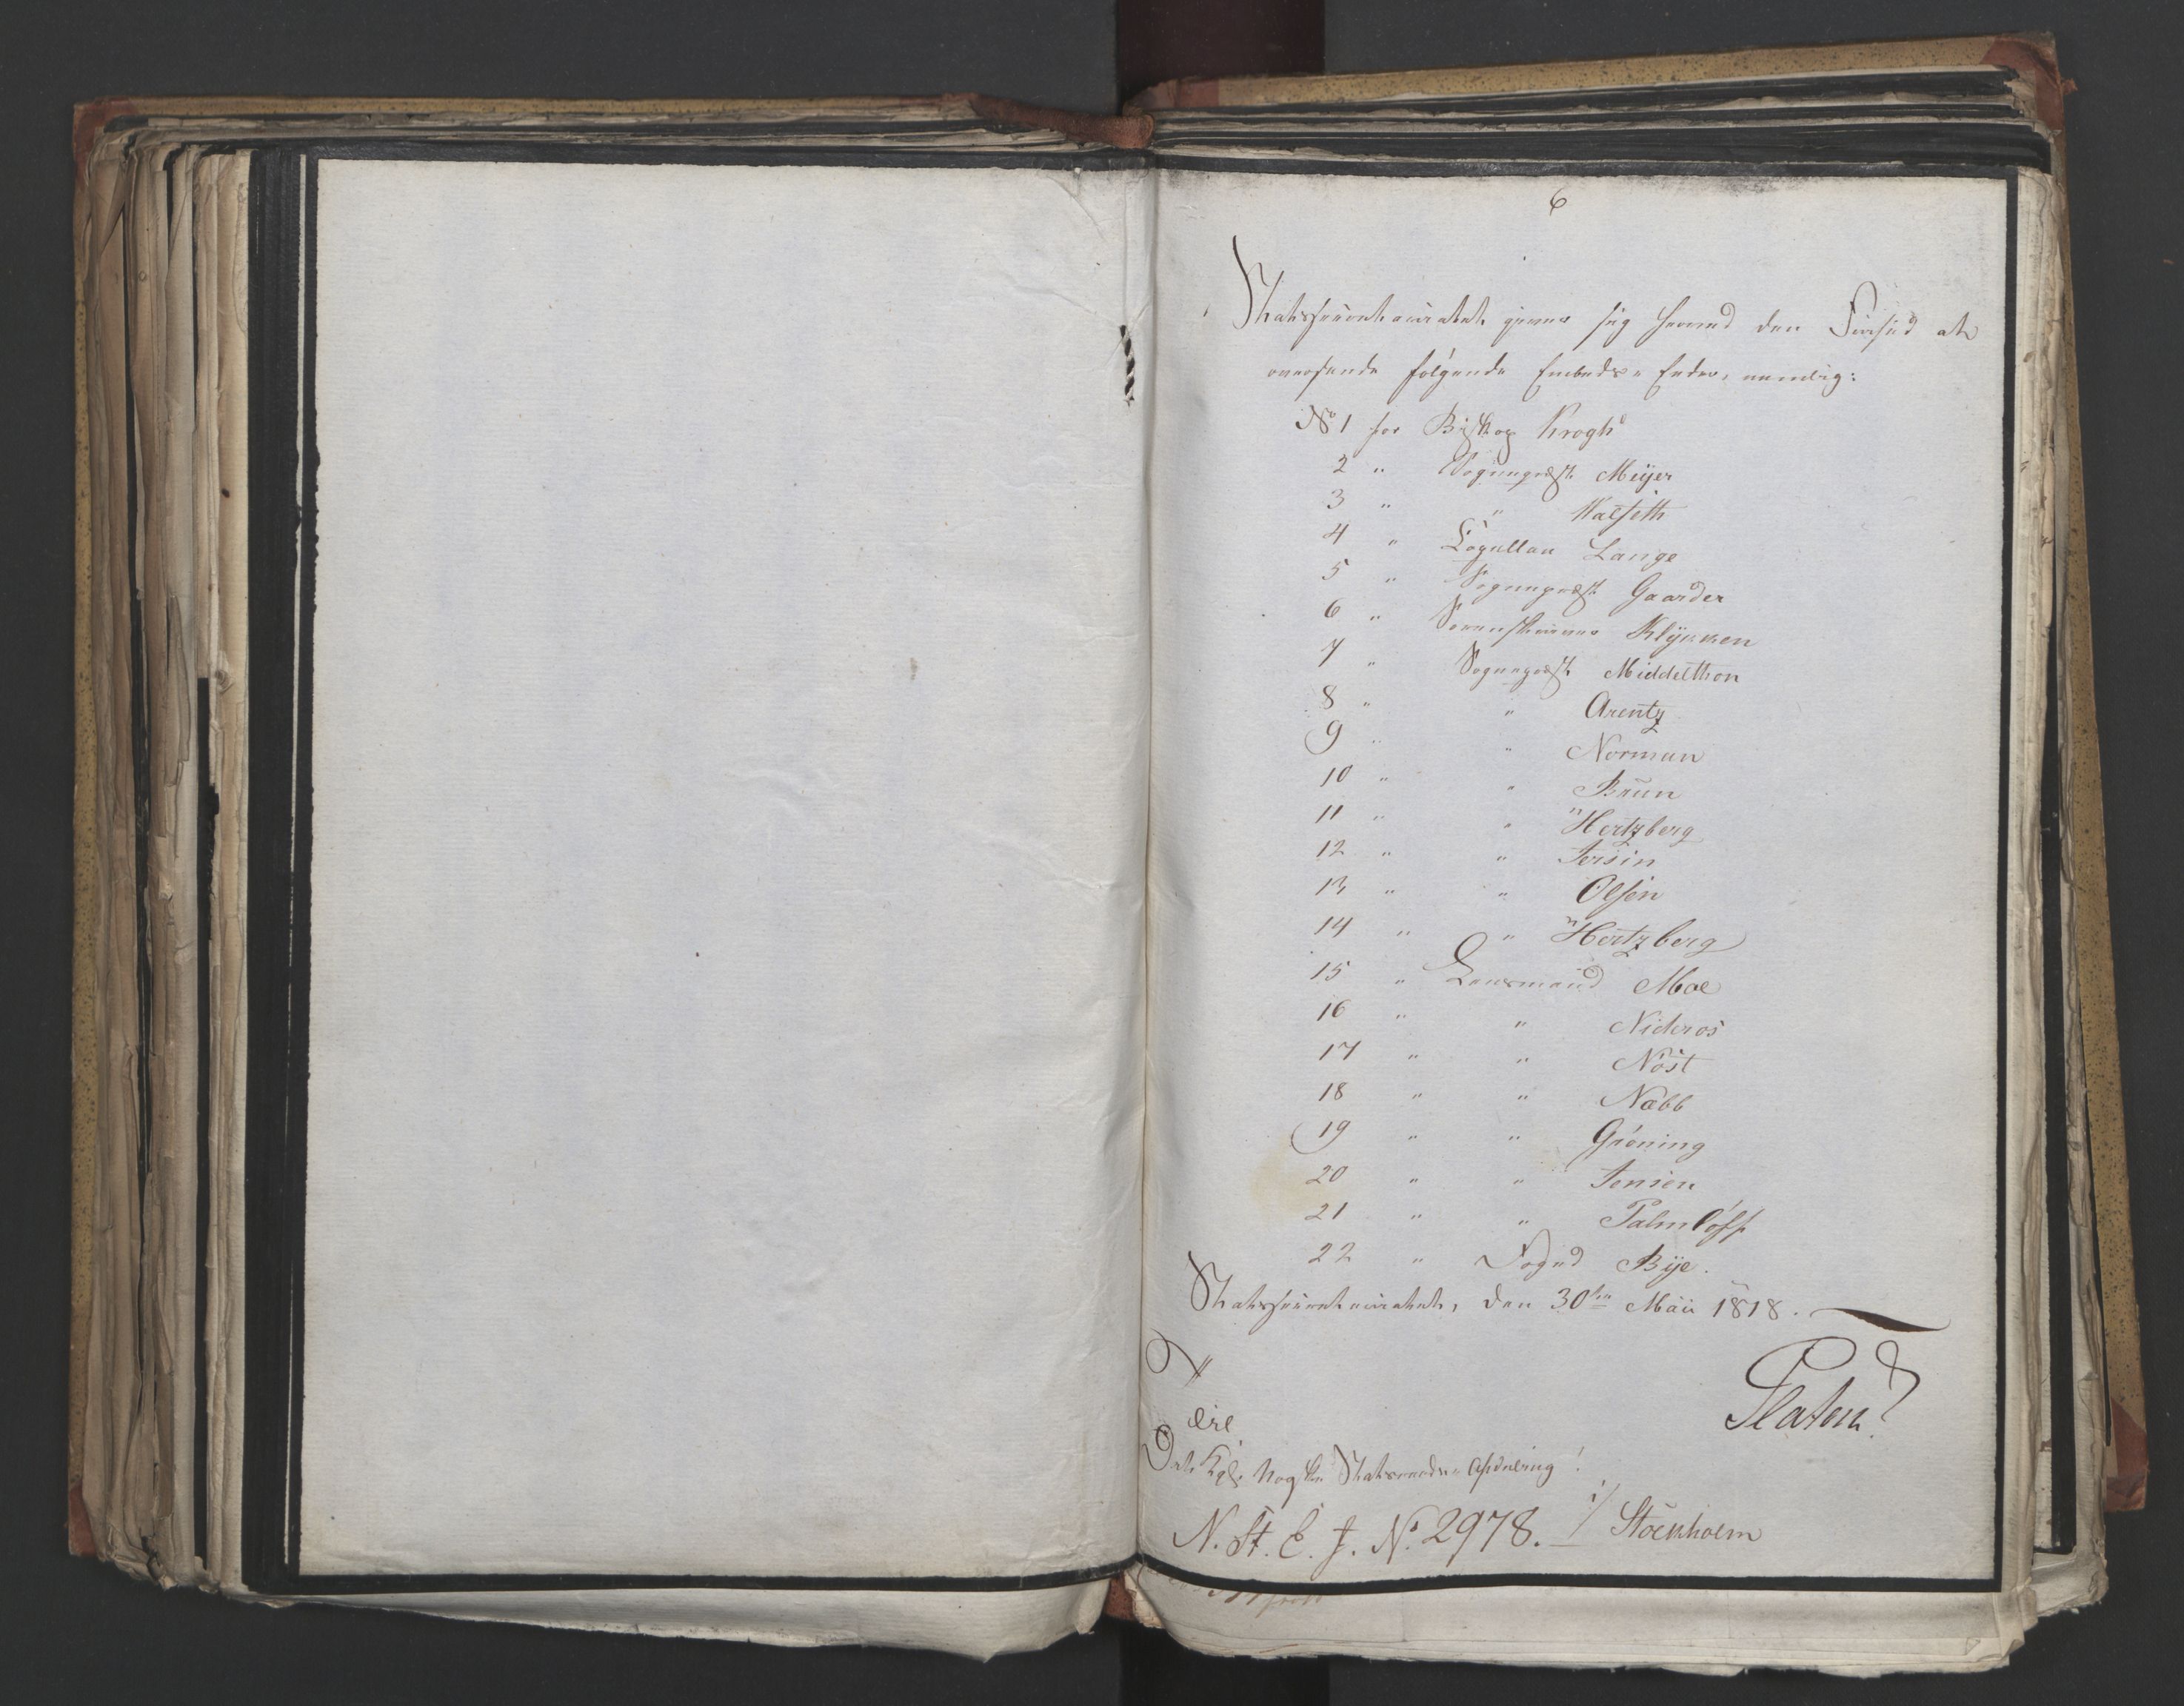 6
Statssecretariatet giver sig herved den Frihed at
oversende følgende Embeds-Eeder, nemlig:
No 1 for Biskop Krogh
2 " Sognepræst Meijer
3 " " Walseth
4 " Capellan Lange
5 " Sognepræst Gaarder
6 " Sorenskriver Klykken
7 " Sognepræst Middelthon
8 " " Arentz
9 " " Norman
10 " " Brun
11 " " Hertzberg
12 " " Jersin
13 " " Olsen
14 " " Hertzberg
15 " Lensmand Moe
16 " " Nideros
17 " " Nöst
18 " " Næbb
19 " " Gröning
20 " " Jensen
21 " " Palmlöff
22 " Foged Bije.
Statssecretariatet, den 30te Maii 1818.
Platen
Til
Det Kgl. Norske Statsraads-Afdeling
i Stockholm
N. St. E. J. No. 2978.